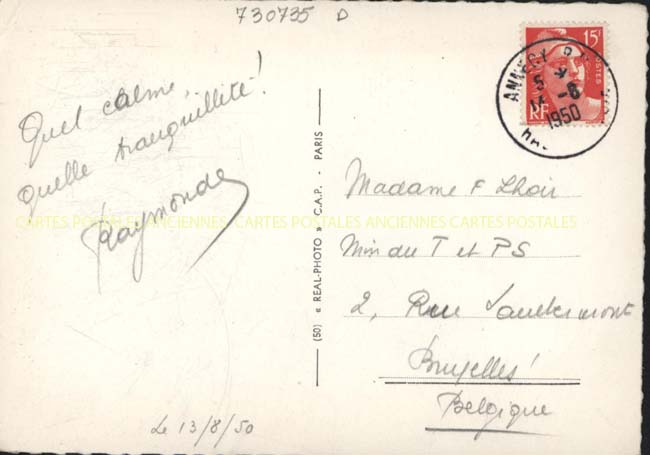 730735 D
15F
POSTES
RF
ANNECY
5
14 -8
1950
Quel calme,
quelle tranquillité!
Raymonde
Le 13/8/50
(50) « REAL-PHOTO » C.A.P. - PARIS
CARTES POSTALES ANCIENNES CARTES POSTALES ANCIENNES CARTES POSTALES
Madame F Lhoir
Min du T et PS
2, Rue
Bruxelles
Belgique